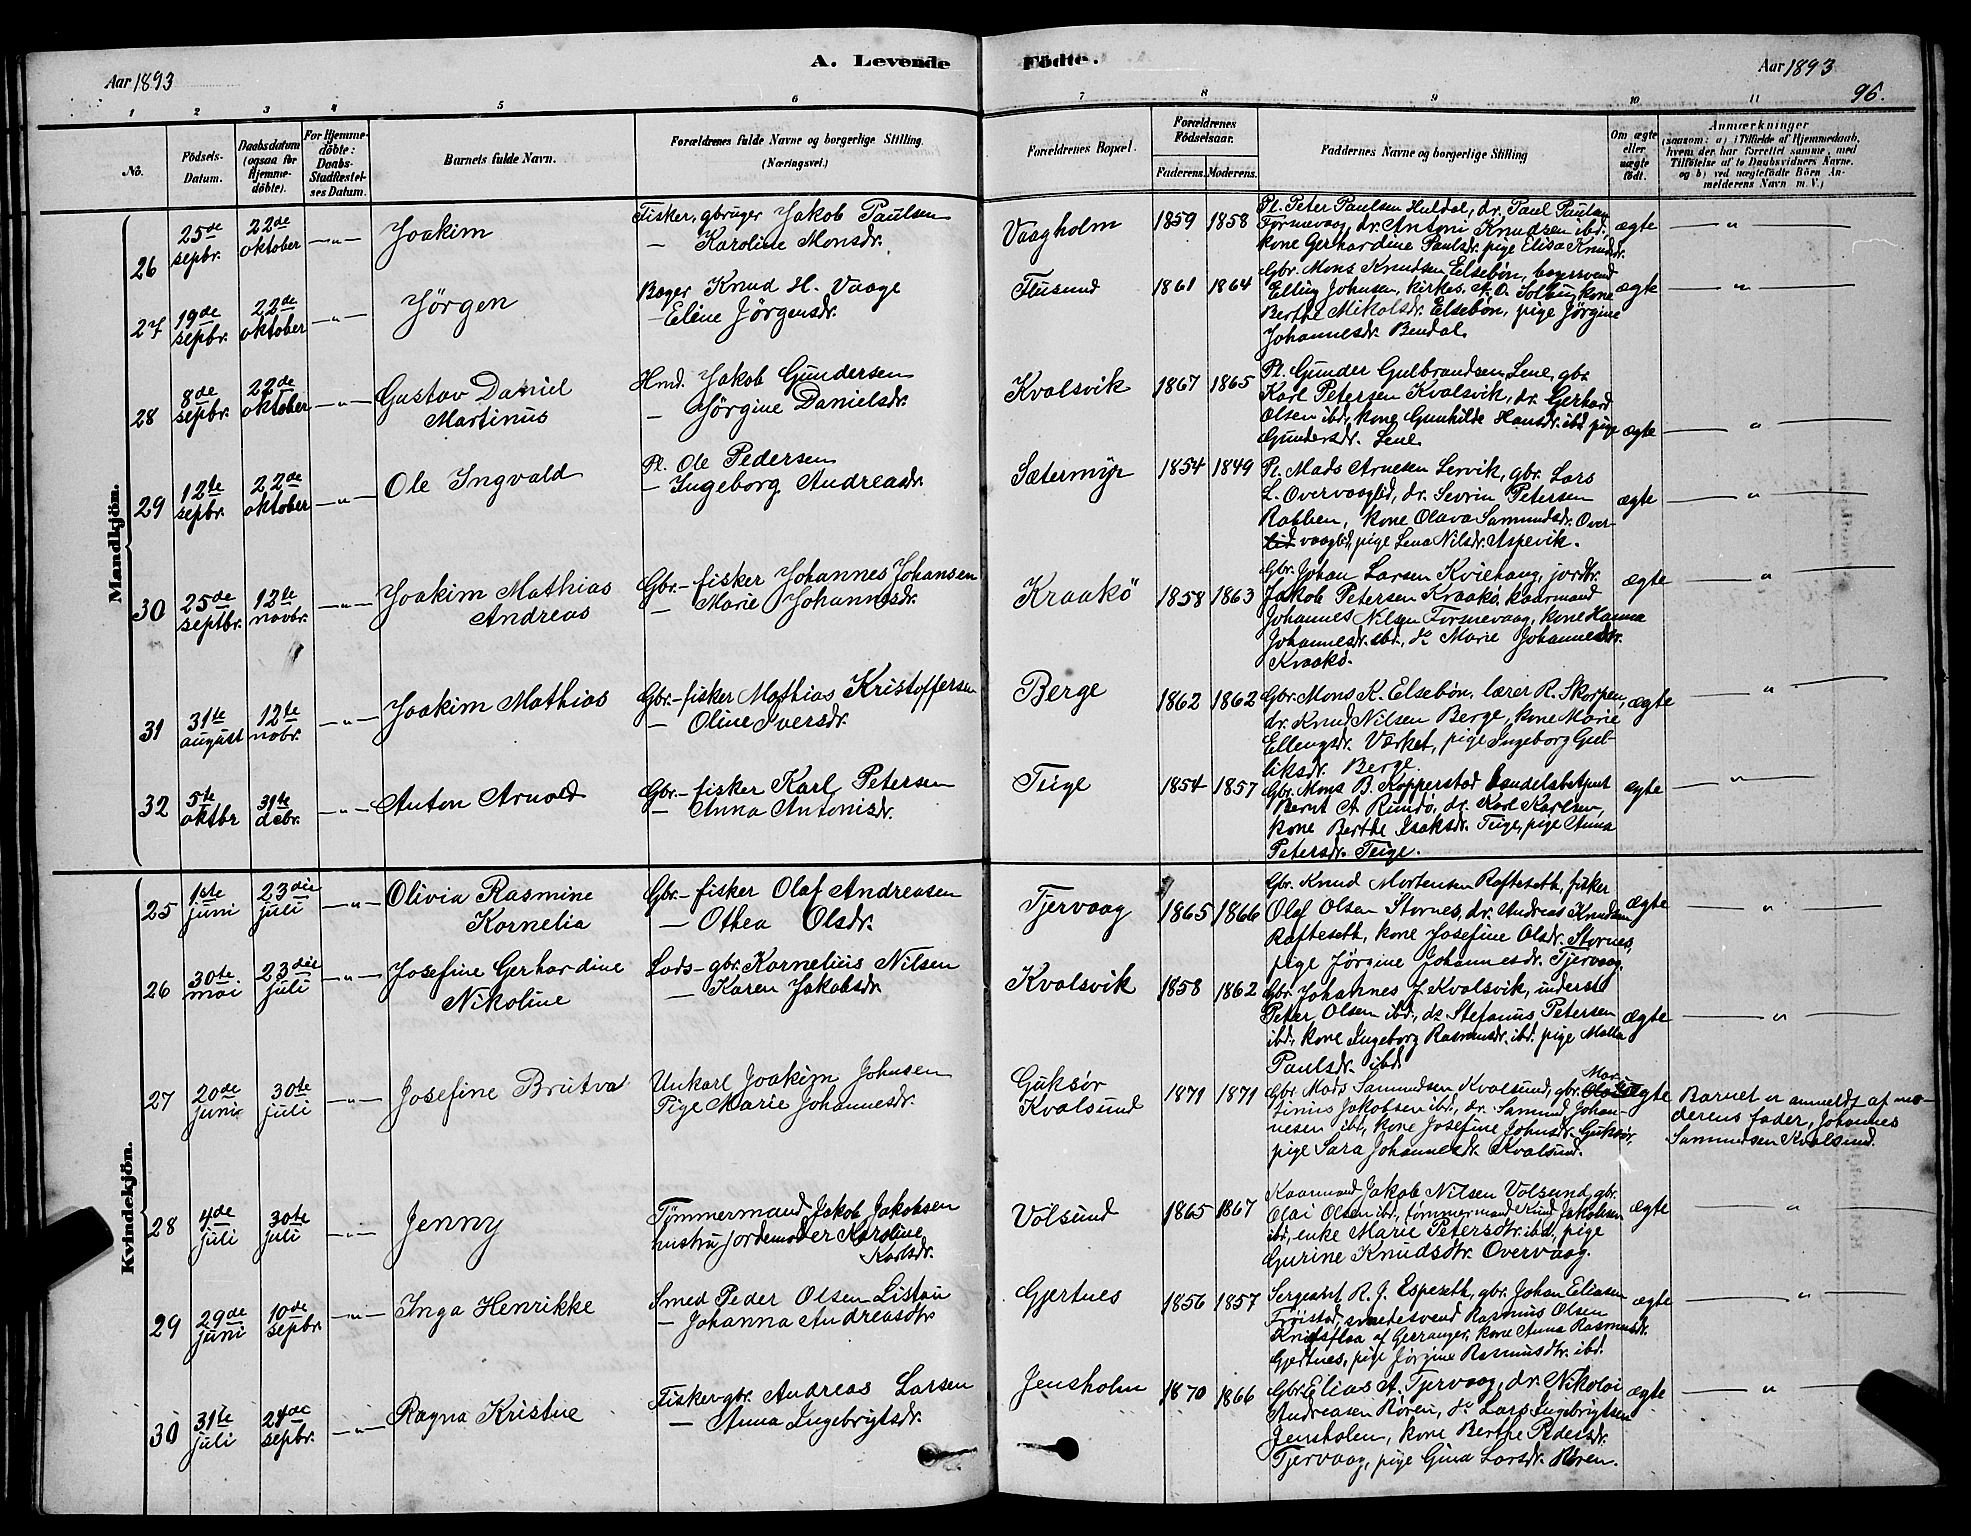 Aar 1893
A. Levende Födte.
Aar 1893
96.
1 2 3 4 5 6 7 8 9 10 11
No.
Födsels-Datum.
Daabsdatum (ogsaa for Hjemme-döbte).
For Hjemme-döbte: Daabs-Stadfæstel-ses Datum.
Barnets fulde Navn.
Forældrenes fulde Navne og borgerlige Stilling. (Næringsvei.)
Forældrenes Bopæl.
Forældrenes Födselsaar.
Faderens. Moderens.
Faddernes Navne og borgerlige Stilling
Om ægte eller uægte födt.
Anmærkninger
(saasom: a) i Tilfælde af Hjemmedaab, hvem der har forrettet samme, med Tilföielse af to Daabsvidners Navne, og b) ved uægtefödte Börn An-melderens Navn m. V.)
Mandkjön.
26 25de sepbr. 22de oktober —"— Joakim
Fisker, gbruger Jakob Paulsen
— Karoline Monsdr.
Vaagholm 1859 1858
Pl. Peter Paulsen Huldal, dr. Paul Paulsen
Tornevaag, dr. Antoni Knudsen ibd.
kone Gerhardine Paulsdr. pige Elisa Knudsdr.
ægte — " —
27 19de sepbr. 22de oktober —"— Jörgen
Bager Knud H. Vaage
— Elene Jörgensdr.
Flusund 1861 1864
Gbr. Mons Knudsen Elsebön, bagersvend
Elling Johnsen, kirkes. A. O. Solbug, kone
Berthe Mikolsdr. Elsebön, pige Jörgine
Johannesdr. Bendal.
ægte — " —
28 8de sepbr. 22de oktober —"— Gustav Daniel
Martinus
Hmd. Jakob Gundersen
— Jörgine Danielsdr.
Kvalsvik 1867 1865
Pl. Gunder Gulbrandsen Lene, gbr.
Karl Petersen Kvalsvik, dr. Gerhard
Olsen ibd, kone Gunhilde Hansdr. ibd. pige
Gundersdr. Lene.
ægte — " —
29 12te sepbr. 22de oktober —"— Ole Ingvald
Pl. Ole Pedersen
— Ingeborg Andreasdr.
Sætermyr 1854 1849
Pl. Mads Arnesen Lervik, gbr. Lars
L. Overvaaglid, dr. Sevrin Petersen
Rabben, kone Olava Samundsdr. Over-
lid vaaglid, pige Lena Nilsdr. Aspevik.
ægte — " —
30 25de septbr. 12te novbr. —"— Joakim Mathias
Andreas
Gbr.- fisker Johannes Johansen
— Marie Johannesdr.
Kraakö 1858 1863
Gbr. Johan Larsen Kviehaug, jordbr.
Jakob Petersen Kraakö, kaarmand
Johannes Nilsen Tornevaag, kone Hanna
Johannesdr. ibd., do Marie Johannesdr.
Kraakö.
ægte — " —
31 31te august 12te nobr. —"— Joakim Mathias
Gbr.- fisker Mathias Kristoffersen
— Oline Iversdr.
Berge 1862 1862
Gbr. Mons K. Elsebön, lærer R. Skorpen,
dr. Knud Nilsen Berge, kone Marie
Ellengsdr. Værket, pige Ingeborg Gul-
liksdr. Berge.
ægte — " —
32 5te oktbr 31te debr. —"— Anton Arnold
Gbr.- fisker Karl Petersen
— Anna Antonisdr.
Teige 1854 1857
Gbr. Mons B. Kopperstad handelsbetjent
Bernt A. Rundö, dr. Karl Karlsen,
kone Berthe Isaksdr. Teige, pige Anna
Petersdr. Teige.
ægte — " —
Kvindekjön.
25 1ste juni 23die juli —"— Olivia Rasmine
Kornelia
Gbr- fisker Olaf Andreasen
— Othea Olsdr.
Tjervaag 1865 1866
Gbr. Knud Mortensen Rafteseth, fisker
Olaf Olsen Stornes, dr. Andreas Knudsen
Rafteseth, kone Josefine Olsdr. Stornes,
pige Jörgine Johannesdr. Tjervaag.
ægte — " —
26 30te mai 23die juli —"— Josefine Gerhardine
Nikoline
Lods- gbr. Kornelius Nilsen
— Karen Jakobsdr.
Kvalsvik 1858 1862
Gbr. Johannes J. Kvalsvik, inderst
Peter Olsen ibd, do Stefanus Petersen
ibd., kone Ingeborg Rasmusdr. ibd. pige Malla
Paulsdr. ibd.
ægte — " —
27 20de juni 30te juli —"— Josefine Brutva
Unkarl Joakim Johnsen
Pige Marie Johannesdr.
Guksör
Kvalsund 1871 1871
Gbr. Mads Samundsen Kvalsund, gbr. Mar-
tinus Jakobsen ibd., dr. Samund Johan-
nesen ibd, kone Josefine Johnsdr. Guksör,
pige Sara Johannesdr. Kvalsund.
uægte
Barnet er anmeldt af mo-
derens fader, Johannes
Sammundsen Kvalsund.
28 4de juli 30te juli —"— Jenny
Tömmermand Jakob Jakobsen
hustru jordemoder Karoline
Karlsdr.
Volsund 1865 1867
Kaarmand Jakob Nilsen Volsund, gbr.
Olai Olsen ibd, tömmermand Knud Jakobsen
ibd, enke Marie Petersdtr. ibd., pige
Gurine Knudsdtr. Overvaag.
ægte "
29 29de juni 10de sepbr. —"— Inga Henrikke
Smed Peder Olsen Listau
— Johanna Andreasdtr
Gjertnes 1856 1857
Sergeant R. J. Espeseth, gbr. Johan Eliasen
Fröistad, smedesvend Rasmus Olsen
Knifsflaa af Gerranger, kone Anna Rasmusdr.
Gjertnes, pige Jörgine Rasmusdtr. ibd.
ægte — " —
30 31te juli 24de sepbr. —"— Ragna Kristne
Fisker-gbr. Andreas Larsen
— Anna Ingebrigtsdr.
Jensholm 1870 1866
Gbr. Elias A. Tjervaag, dr. Nikolai
Andreasen Rören, do Lars Ingebrigtsen
Jensholen, kone Berthe Pedersdr.
Tjervaag, pige Gina Larsdr. Rören.
ægte — " —